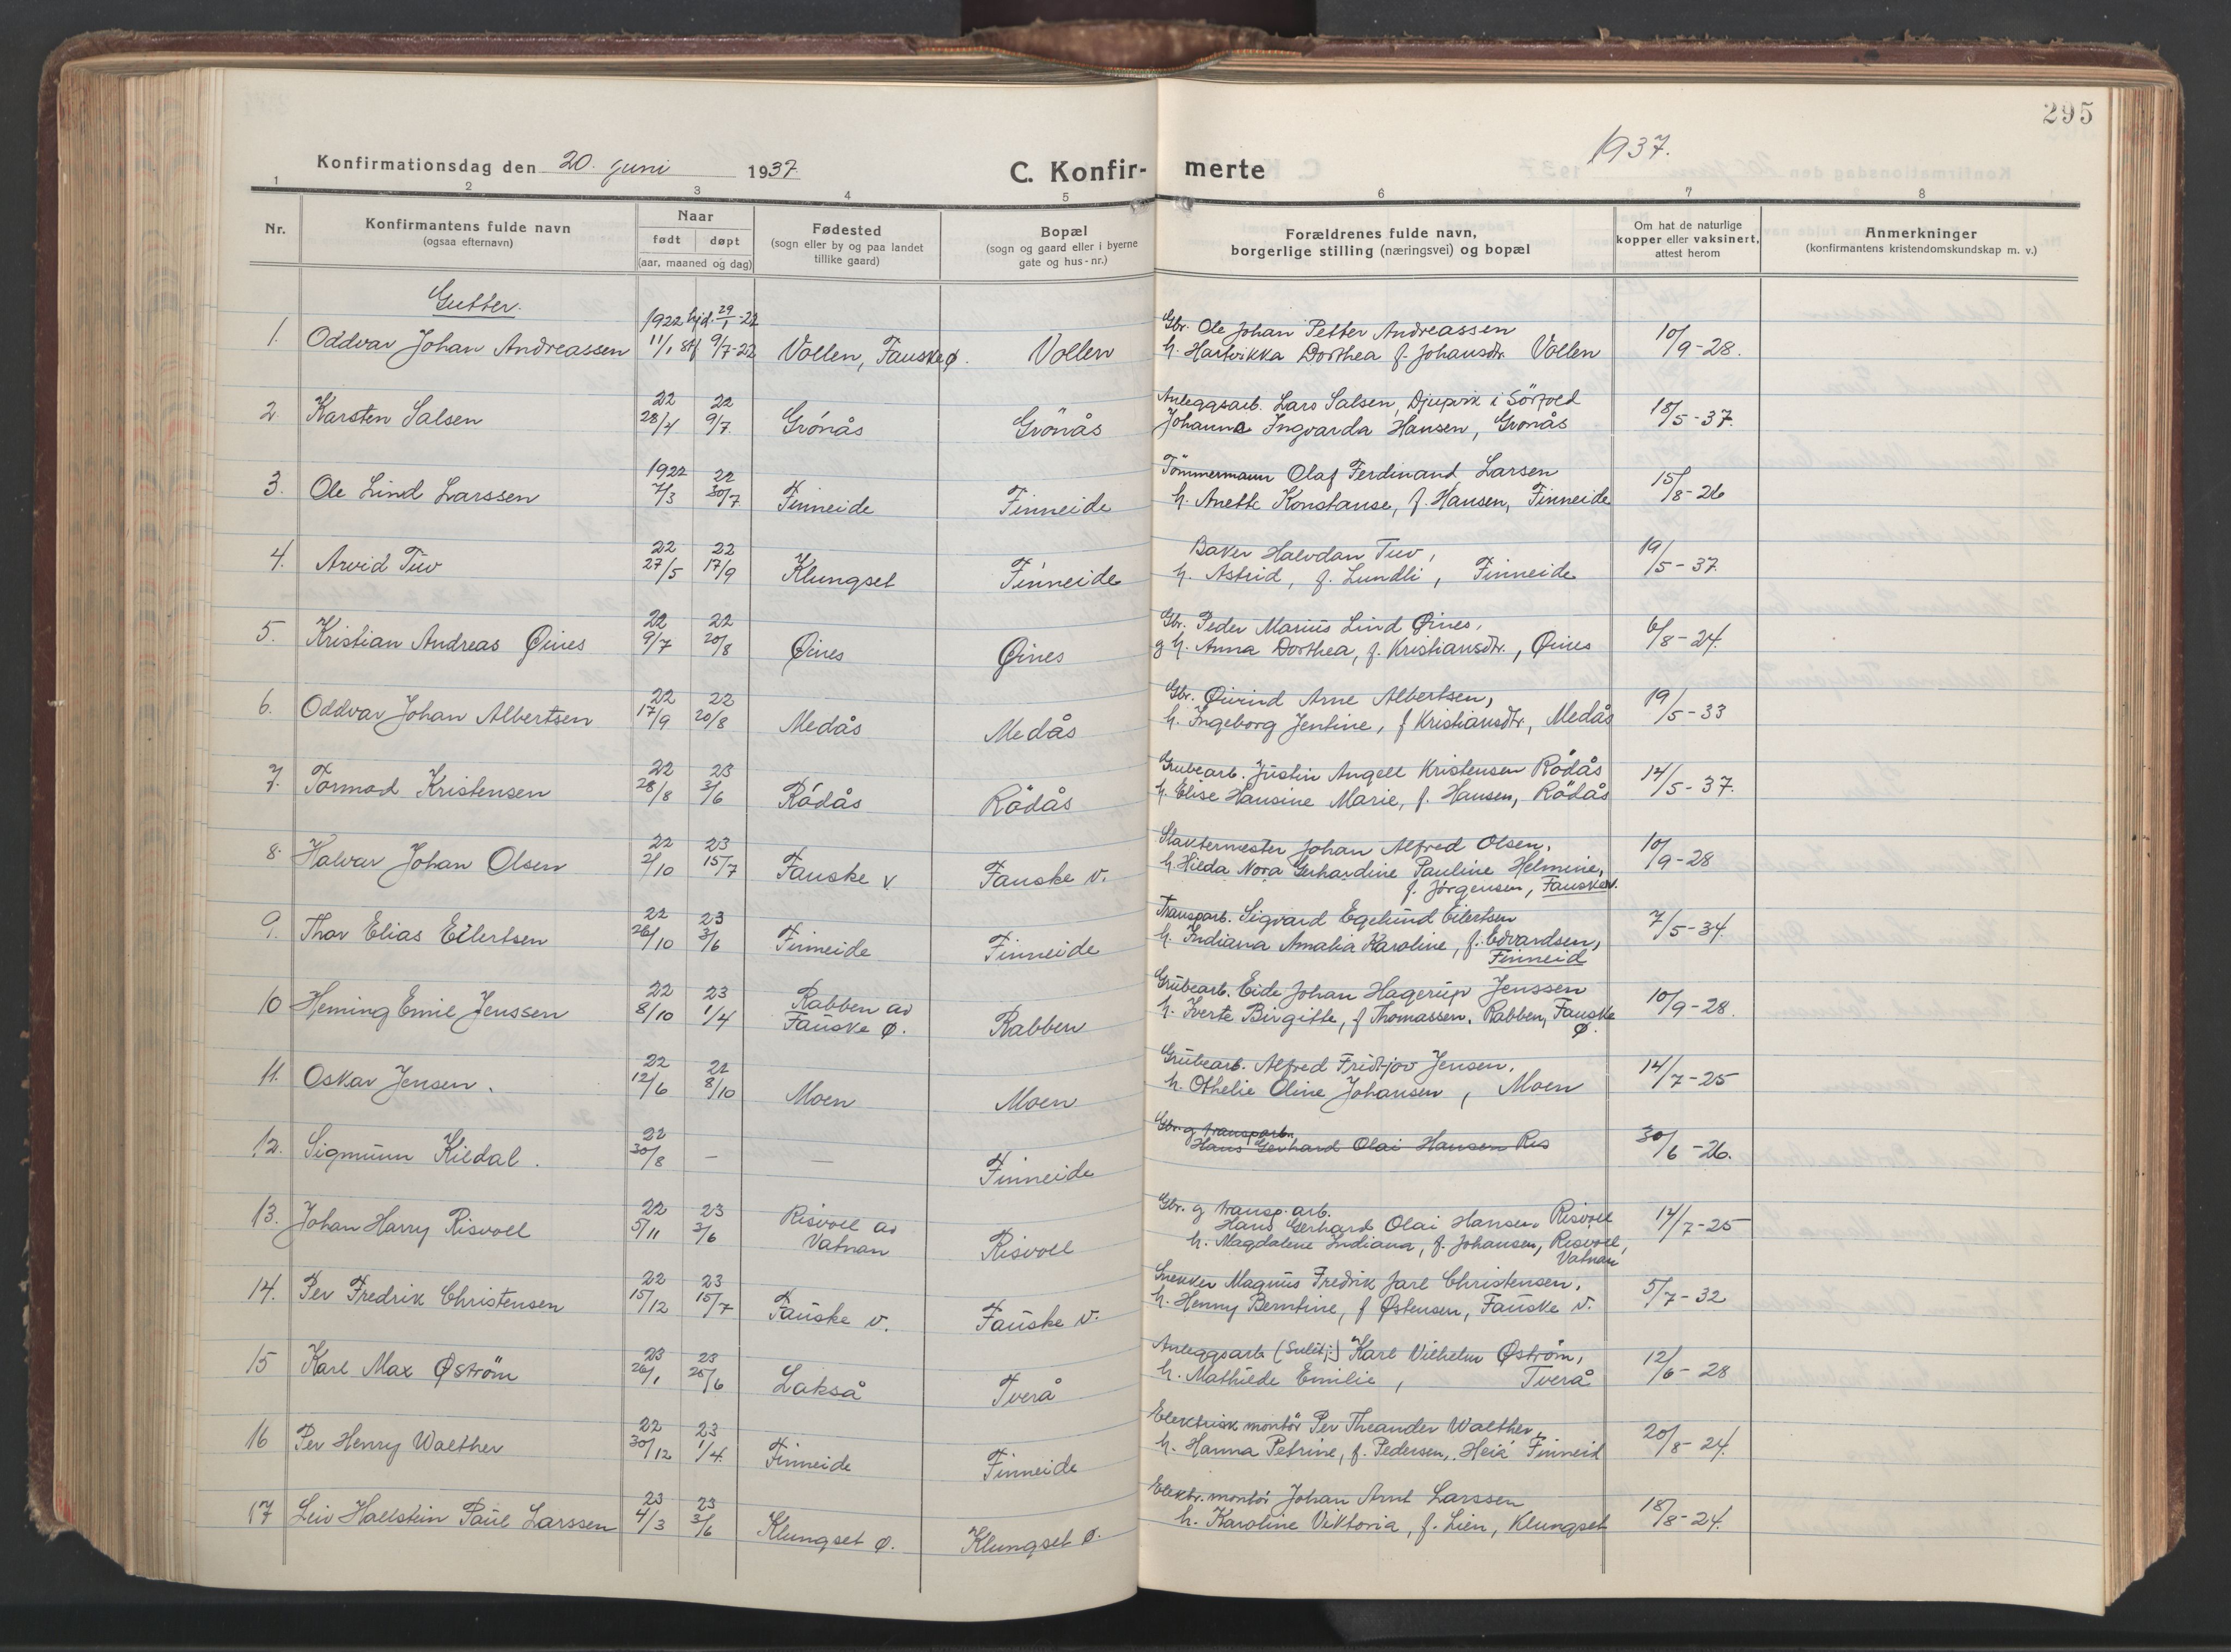 295
1937.
Konfirmationsdag den 20. juni 1937
C. Konfir- merte
1 2 3 4 5 6 7 8
Nr.
Konfirmantens fulde navn
(ogsaa efternavn)
Naar
født døpt
(aar, maaned og dag)
Fødested
(sogn eller by og paa landet
tillike gaard)
Bopæl
(sogn og gaard eller i byerne
gate og hus-nr.)
Forældrenes fulde navn,
borgerlige stilling (næringsvei) og bopæl
Om hat de naturlige
kopper eller vaksinert,
attest herom
Anmerkninger
(konfirmantens kristendomskundskap m. v.)
Gutter.
1922 hjd. 29/1-22
1. Oddvar Johan Andreassen 11/1 9/7-22 Vollen, Fauske ø. Vollen
Gbr. Ole Johan Petter Andreassen
h. Hartvikka Dorthea f. Johansdr. Vollen
10/9-28.
2. Karsten Salsen 22 28/4 22 9/7. Grönås Grönås
Anleggsarb. Lars Salsen, Djupvik i Sörfold
Johanna Ingvarda Hansen, Grönås
18/5-37.
3. Ole Lind Larssen 1922 7/3 22 30/7 Finneide Finneide
Tömmermann Olaf Ferdinand Larsen
h. Anette Konstanse, f. Hansen, Finneide
15/8-26
4. Arvid Tuv 22 27/5 22 17/9 Klungset Finneide
Baker Halvdan Tuv,
h. Astrid, f. Lundli, Finneide
19/5-37.
5. Kristian Andreas Øines 22 9/7 22 20/8 Øines Øines
Gbr. Peder Marius Lind Øines,
g h. Anna Dorthea, f. Kristiansdtr., Øines
6/8-24.
6. Oddvar Johan Albertsen 22 17/9 22 20/8 Medås Medås
Gbr. Øivind Arne Albertsen,
h. Ingeborg Jentine, f Kristiansdtr, Medås
19/5-33
7. Tormod Kristensen 22 28/8 23 3/6 Rödås Rödås
Grubearb. Justin Angell Kristensen Rödås
h. Elise Hansine Marie, f. Hansen, Rödås
14/5-37.
8. Halvar Johan Olsen 22 2/10 23 15/7 Fauske v Fauske v.
Slaktermester Johan Alfred Olsen,
h. Hilda Nora Gerhardine Pauline Helmine,
f. Jörgensen, Fauske v.
10/9-28
9. Thor Elias Eilertsen 22 26/10 23 3/6 Finneide Finneide
Transparb. Sigvard Egelund Eilertsen
h. Indiana Amalia Karoline, f. Edvardsen,
Finneid
7/5-34.
10 Heming Emil Jenssen 22 8/10 23 1/4 Rabben av Fauske Ø. Rabben
Grubearb. Eide Johan Hagerup Jenssen
h. Iverte Birgitte, f Thomassen, Rabben, Fauske Ø.
10/9-28.
11. Oskar Jensen. 22 12/6 22 8/10 Moen Moen
Grubearb. Alfred Fridtjov Jensen,
h. Othelie Oline Johansen, Moen
14/7-25
12. Sigmunn Kildal. 22 30/8 – – Finneide
Gbr. g transparb.
Hans Gerhard Olai Hansen Ris
30/6-26.
13. Johan Harry Risvoll 22 5/11 23 3/6 Risvoll av Vatnan Risvoll
Gbr. g transp.arb.
Hans Gerhard Olai Hansen Risvoll
h. Magdalene Indiana, f. Johansen, Risvoll,
Vatnan
14/7-25
14. Per Fredrik Christensen 22 15/12 23 15/7 Fauske v. Fauske v.
Snekker Magnus Fredrik Jarl Christensen,
h. Henny Berntine, f Østensen, Fauske v.
5/7-32
15 Karl Max Øström 23 26/1 23 25/6 Lakså Tverå
Anleggsarb. (Sulitj.) Karl Vilhelm Øström,
h. Mathilde Emilie, Tverå
12/6-28
16 Per Henry Walther 22 30/12 23 1/4. Finneide Finneide
Elektrisk montör Per Theander Walther,
h. Hanna Petrine, f. Pedersen, Finneid
20/8-24.
17 Leiv Hallstein Paul Larssen 23 4/3 23 3/6 Klungset ø. Klungset ø.
Elektr. montör Johan Arnt Larssen
h. Karoline Viktoria, f. Lien, Klungset
18/8-24.